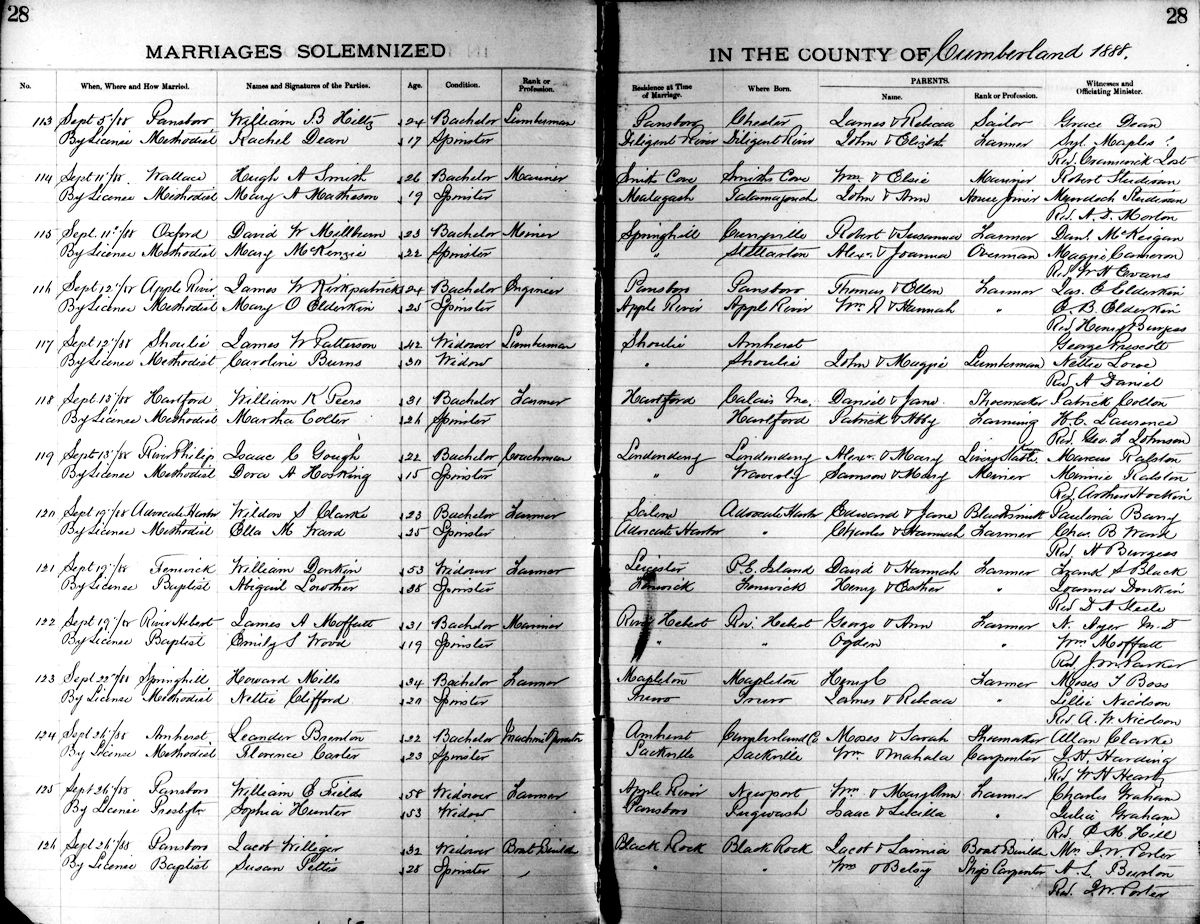 28 28
MARRIAGES SOLEMNIZED IN THE COUNTY OF Cumberland 1888.
No. When, Where and How Married. Names and Signatures of the Parties. Age. Condition. Rank or Profession. Residence at Time of Marriage. Where Born. PARENTS. Name. Rank or Profession. Witnesses and Officiating Minister.
113 Sept 5/88 Parsboro William B Hiltz 24 Bachelor Lumberman Parsboro Chester James & Rebecca Sailor Grace Dean
By License Methodist Rachel Dean 17 Spinster Diligent River Diligent River John & Elizbth Farmer Maples
Rev.
114 Sept 11/88 Wallace Hugh A Smith 26 Bachelor Mariner Smith Cove Smiths Cove Wm & Elsie Mariner Robert
By License Methodist Mary A Matheson 19 Spinster Malagash Tatamagouch John & Ann House Joiner Murdoch
Rev. A. D. Morton
115 Sept. 11/88 Oxford David W Millburn 23 Bachelor Meiner Springhill Robert & Susanna Farmer Danl. McKeigan
By License Methodist Mary McKenzie 22 Spinster " Stellarton Alex. & Joanna Overman Maggie Cameron
Rev W H Evans
116 Sept 12/88 Apple River James W Kirkpatrick 24 Bachelor Engineer Parsboro Parsboro Thomas & Ellen Farmer Jas. E Elderkin
By License Methodist Mary O Elderkin 25 Spinster Apple River Appl River Wm R & Hannah " E. B. Elderkin
Rev Henry Burgess
117 Sept 12/88 Shoulie James W Patterson 42 Widower Lumberman Shoulie Amherst George Prescott
By License Methodist Caroline Burns 30 Widow " Shoulie John & Maggie Lumberman Nettie Lowe
Rev A Daniel
118 Sept 13/88 Hartford William K Peers 31 Bachelor Farmer Hartford Calais Me. Daniel & Jane Shoemaker Patrick Colton
By License Methodist Martha Colter 26 Spinster " Hartford Patrick & Abby Farming H. C. Laurence
Rev. Geo. F Johnson
119 Sept 13/88 River Philip Isaac C Gough 22 Bachelor Coachman Londonderry Londonderry Alex. & Mary Livery Stable Marcus Ralston
By License Methodist Dora A Hocking 15 Spinster " Waverly Samson & Mary Meiner Minnie Ralston
Rev. Arthur Hockin
120 Sept 19/88 Advocate Harbor Weldon S Clarke 23 Bachelor Farmer Salem Advocate Harbor Edward & Jane Blacksmith Paulena Barry
By License Methodist Ella M Ward 25 Spinster Advocate Harbor " Charles & Hannah Farmer Chas. B Ward
Rev. H Burgess
121 Sept 19/88 Fenwick William Donkin 53 Widower Farmer Leicester P. E. Island David & Hannah Farmer Frank S Black
By License Baptist Abigail Lowther 38 Spinster Fenwick Fenwick Henry & Esther " Joanna Donkin
Rev D A Steele
122 Sept 19/88 River Hebert James A Moffatt 31 Bachelor Mariner River Hebert Riv. Hebert George & Ann Farmer N. Ayer M.D
By License Baptist Emily S Wood 19 Spinster " " Ogden " Wm Moffatt
Rev. J M Parker
123 Sept 22/88 Springhill Howard Mills 34 Bachelor Farmer Mapleton Mapleton Henry C Farmer Moses T Boss
By License Methodist Nettie Clifford 20 Spinster Truro Truro James & Rebecca " Lillie Nicolson
Rev A. W Nicolson
124 Sept 26/88 Amherst Leander Brenton 22 Bachelor Machine Operator Amherst Cumberland C. Moses & Sarah Shoemaker Allan Clarke
By License Methodist Florence Carter 23 Spinster Sackville Sackville Wm. & Mahala Carpenter J. H. Harding
Rev W H Heartz
125 Sept 26/88 Parsboro William E Fields 58 Widower Farmer Apple River Newport Wm & Mary Ann Farmer Charles Graham
By License Presbytr Sophia Hunter 53 Widow Parsboro Pugwash Isaac & Lucilla " Julia Graham
Rev. Hill
126 Sept 26/88 Parsboro Jacob Williger 32 Widower Boat Builder Black Rock Black Rock Jacob & Lavinia Boat Builder Mrs J. W Porter
By License Baptist Susan Pettis 28 Spinster " " " Wm & Betsy Ship Carpenter A. L. Burton
Rev. J. W. Porter